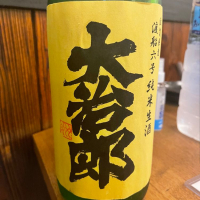 渡船六号 純米生酒
大治郎